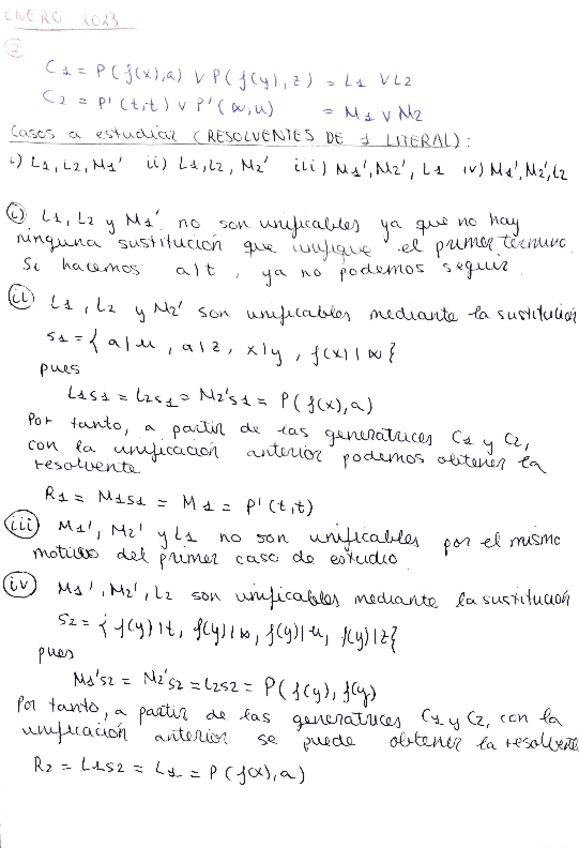 ENERO 2023
2
C1 = P(f(x),a) ∨ P(f(y),z) = L1 ∨ L2
C2 = P'(t,t) ∨ P'(w,u) = M1 ∨ M2
Casos a estudiar (RESOLVENTES DE 1 LITERAL):
i) L1, L2, M1' ii) L1, L2, M2' iii) M1', M2', L1 iv) M1', M2', L2
i) L1, L2 y M1' no son unificables ya que no hay
ninguna sustitución que unifique el primer término.
Si hacemos a|t, ya no podemos seguir.
ii) L1, L2 y M2' son unificables mediante la sustitución
s1 = { a|u, a|z, x|y, f(x)|w }
pues
L1s1 = L2s1 = M2's1 = P(f(x),a)
Por tanto, a partir de las generatrices C1 y C2,
con la unificación anterior podemos obtener la
resolvente
R1 = M1s1 = M1 = P'(t,t)
iii) M1', M2' y L1 no son unificables por el mismo
motivo del primer caso de estudio.
iv) M1', M2', L2 son unificables mediante la sustitución
s2 = { f(y)|t, f(y)|w, f(y)|u, f(y)|z }
pues
M1's2 = M2's2 = L2s2 = P(f(y), f(y)
Por tanto, a partir de las generatrices C1 y C2, con la
unificación anterior se puede obtener la resolvente
R2 = L1s2 = L1 = P(f(x),a)